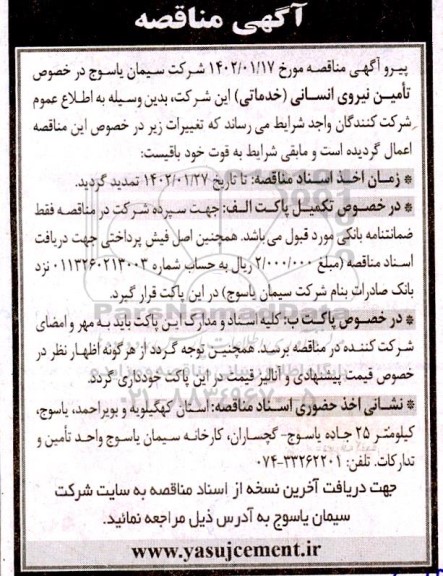 آگهی مناقصه
پیرو آگهی مناقصه مورخ ۱۴۰۲/۰۱/۱۷ شرکت سیمان یاسوج در خصوص
تأمین نیروی انسانی (خدماتی) این شرکت، بدین وسیله به اطلاع عموم
شرکت کنندگان واجد شرایط می رساند که تغییرات زیر در خصوص این مناقصه
اعمال گردیده است و مابقی شرایط به قوت خود باقیست:
* زمان اخذ اسناد مناقصه: تا تاریخ ۱۴۰۲/۰۱/۲۷ تمدید گردید.
* در خصوص تکمیل پاکت الف: جهت سپرده شرکت در مناقصه فقط
ضمانتنامه بانکی مورد قبول می باشد. همچنین اصل فیش پرداختی جهت دریافت
اسناد مناقصه (مبلغ ۲/۰۰۰/۰۰۰ ریال به حساب شماره ۰۱۱۳۲۶۰۲۱۳۰۰۳ نزد
بانک صادرات بنام شرکت سیمان یاسوج) در این پاکت قرار گیرد.
* در خصوص پاکت ب: کلیه اسناد و مدارک این پاکت باید به مهر و امضای
شرکت کننده در مناقصه برسد. همچنین توجه گردد از هرگونه اظهار نظر در
خصوص قیمت پیشنهادی و آنالیز قیمت در این پاکت خودداری گردد.
* نشانی اخذ حضوری اسناد مناقصه: استان کهگیلویه و بویراحمد، یاسوج،
کیلومتر ۲۵ جاده یاسوج- گچساران، کارخانه سیمان یاسوج واحد تأمین و
تدارکات. تلفن: ۳۳۲۶۲۲۰۱-۰۷۴
جهت دریافت آخرین نسخه از اسناد مناقصه به سایت شرکت
سیمان یاسوج به آدرس ذیل مراجعه نمائید.
www.yasujcement.ir